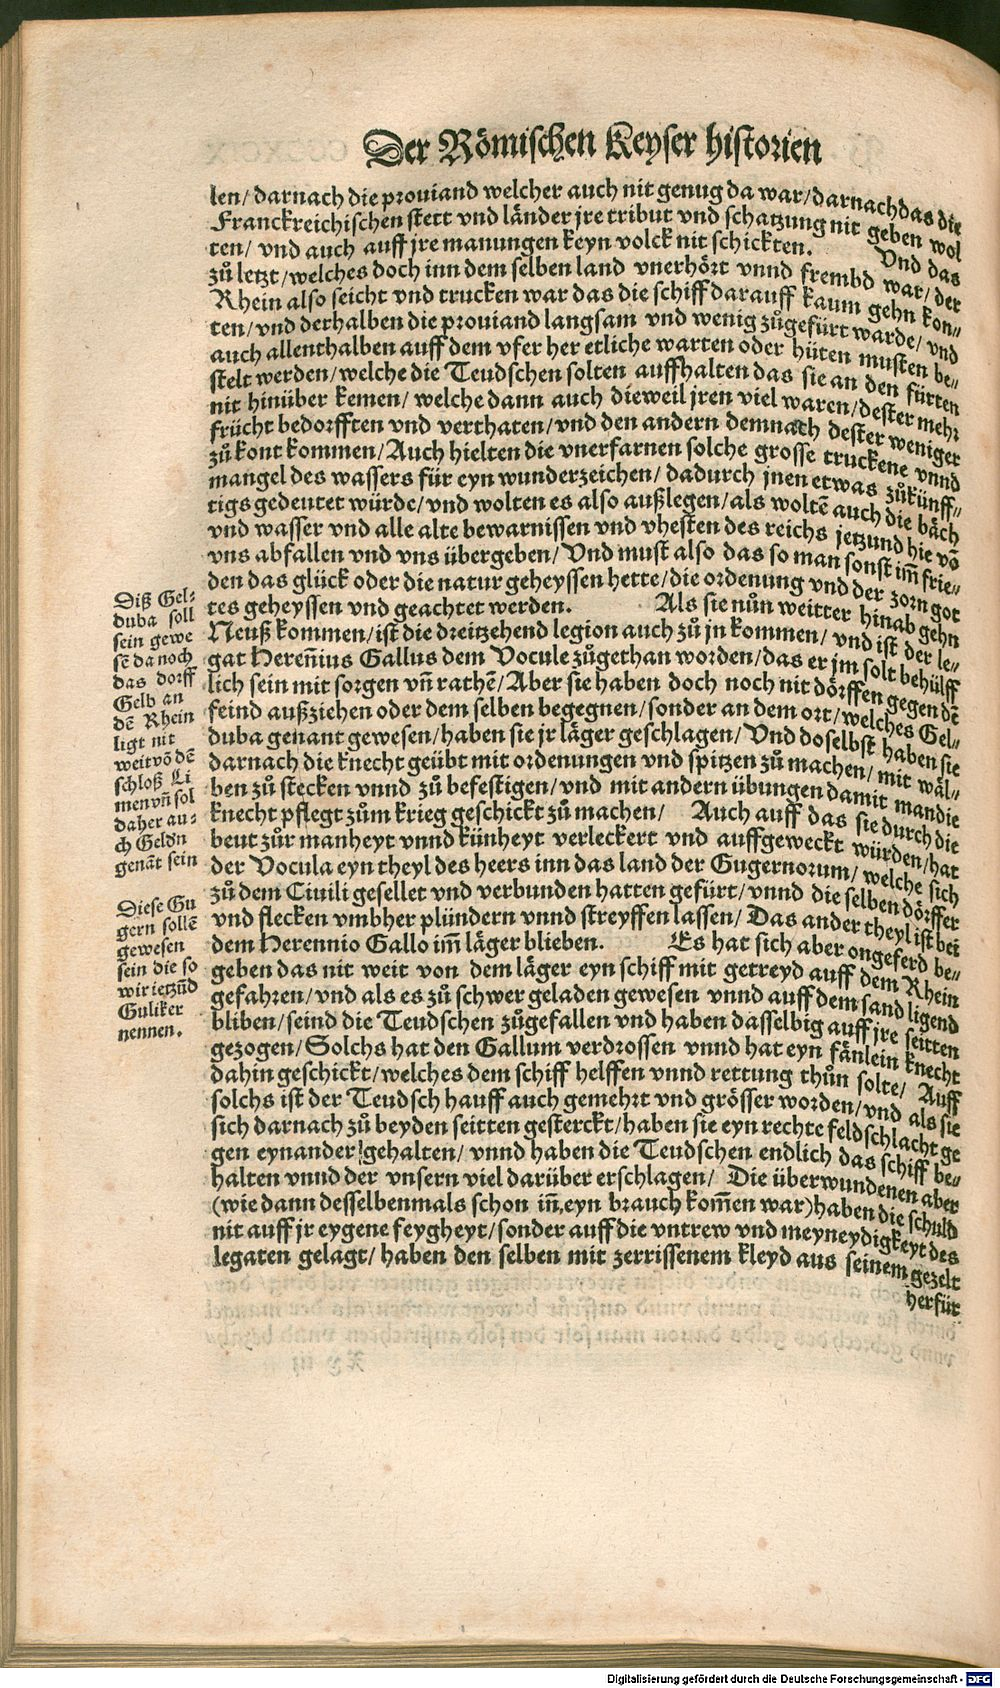 Der Römischen Keyser historien
len/ darnach die prouiand welcher auch nit genug da war/ darnach das die
Franckreichischen stett vnd länder jre tribut vnd schatzung nit geben wol
ten/ vnd auch auff jre manungen keyn volck nit schickten. Vnd das
zů letzt/ welches doch inn dem selben land vnerhört vnnd frembd war/ der
Rhein also seicht vnd trucken war das die schiff darauff kaum gehn kon⸗
ten/ vnd derhalben die prouiand langsam vnd wenig zůgefürt warde/ vnd
auch allenthalben auff dem vfer her etliche warten oder hüten musten be⸗
stelt werden/ welche die Teudschen solten auffhalten das sie an den fürten
nit hinüber kemen/ welche dann auch dieweil jren viel waren/ dester mehr
frücht bedorfften vnd verthaten/ vnd den andern demnach dester weniger
zů kont kommen/ Auch hielten die vnerfarnen solche grosse truckene vnnd
mangel des wassers für eyn wunderzeichen/ dadurch jnen etwas zůkünff⸗
tigs gedeutet würde/ vnd wolten es also außlegen/ als woltē auch die bäch
vnd wasser vnd alle alte bewarnissen vnd vhesten des reichs jetzund hie vō
vns abfallen vnd vns übergeben/ Vnd must also das so man sonst im̄ frie⸗
den das glück oder die natur geheyssen hette/ die ordenung vnd der zorn got
tes geheyssen vnd geachtet werden. Als sie nůn weitter hinab gehn
Neuß kommen/ ist die dreitzehend legion auch zů jn kommen/ vnd ist der le⸗
gat Hereñius Gallus dem Vocule zůgethan worden/ das er jm solt behülff
lich sein mit sorgen vñ rathē/ Aber sie haben doch noch nit dörffen gegen dē
feind außziehen oder dem selben begegnen/ sonder an dem ort/ welches Gel⸗
duba genant gewesen/ haben sie jr läger geschlagen/ Vnd doselbst haben sie
darnach die knecht geübt mit ordenungen vnd spitzen zů machen/ mit wäl⸗
ben zů stecken vnnd zů befestigen/ vnd mit andern übungen damit man die
knecht pflegt zům krieg geschickt zů machen/ Auch auff das sie durch die
beut zůr manheyt vnnd künheyt verleckert vnd auffgeweckt würden/ hat
der Vocula eyn theyl des heers inn das land der Gugernorum/ welche sich
zů dem Ciuili gesellet vnd verbunden hatten gefürt/ vnnd die selben dörffer
vnd flecken vmbher plündern vnnd streyffen lassen/ Das ander theyl ist bei
dem Herennio Gallo im̄ läger blieben. Es hat sich aber ongeferd be⸗
geben das nit weit von dem läger eyn schiff mit getreyd auff dem Rhein
gefahren/ vnd als es zů schwer geladen gewesen vnnd auff dem sand ligend
bliben/ seind die Teudschen zůgefallen vnd haben dasselbig auff jre seitten
gezogen/ Solchs hat den Gallum verdrossen vnnd hat eyn fänlein knecht
dahin geschickt/ welches dem schiff helffen vnnd rettung thůn solte/ Auff
solchs ist der Teudsch hauff auch gemehrt vnd grösser worden/ vnd als sie
sich darnach zů beyden seitten gesterckt/ haben sie eyn rechte feldschlacht ge
gen eynander gehalten/ vnnd haben die Teudschen endlich das schiff be⸗
halten vnnd der vnsern viel darüber erschlagen/ Die überwundenen aber
(wie dann desselbenmals schon iñ eyn brauch kom̄en war) haben die schuld
nit auff jr eygene feygheyt/ sonder auff die vntrew vnd meyneydigkeyt des
legaten gelagt/ haben den selben mit zerrissenem kleyd aus seinem gezelt
herfür
Diß Gel⸗
duba soll
sein gewe
sē da noch
das dorff
Gelb an
dē Rhein
ligt nit
weit vō dē
schloß Li
men vñ sol
daher au⸗
ch Geldn
genāt sein
Diese Gu
gern sollē
gewesen
sein die so
wir ietzūd
Guliker
nennen.
Digitalisierung gefördert durch die Deutsche Forschungsgemeinschaft - DFG